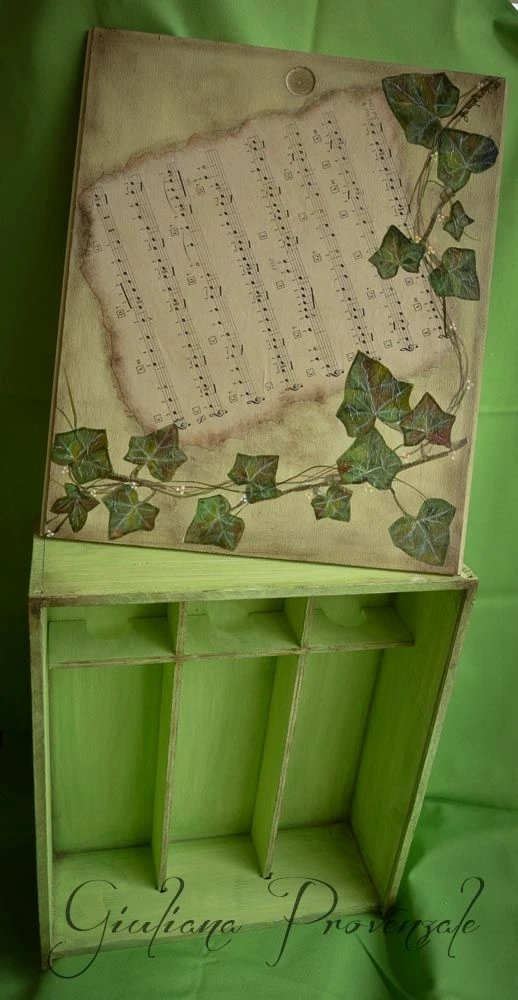 Giuliana Provenzale